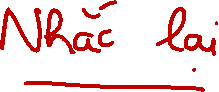 Nhắc lại